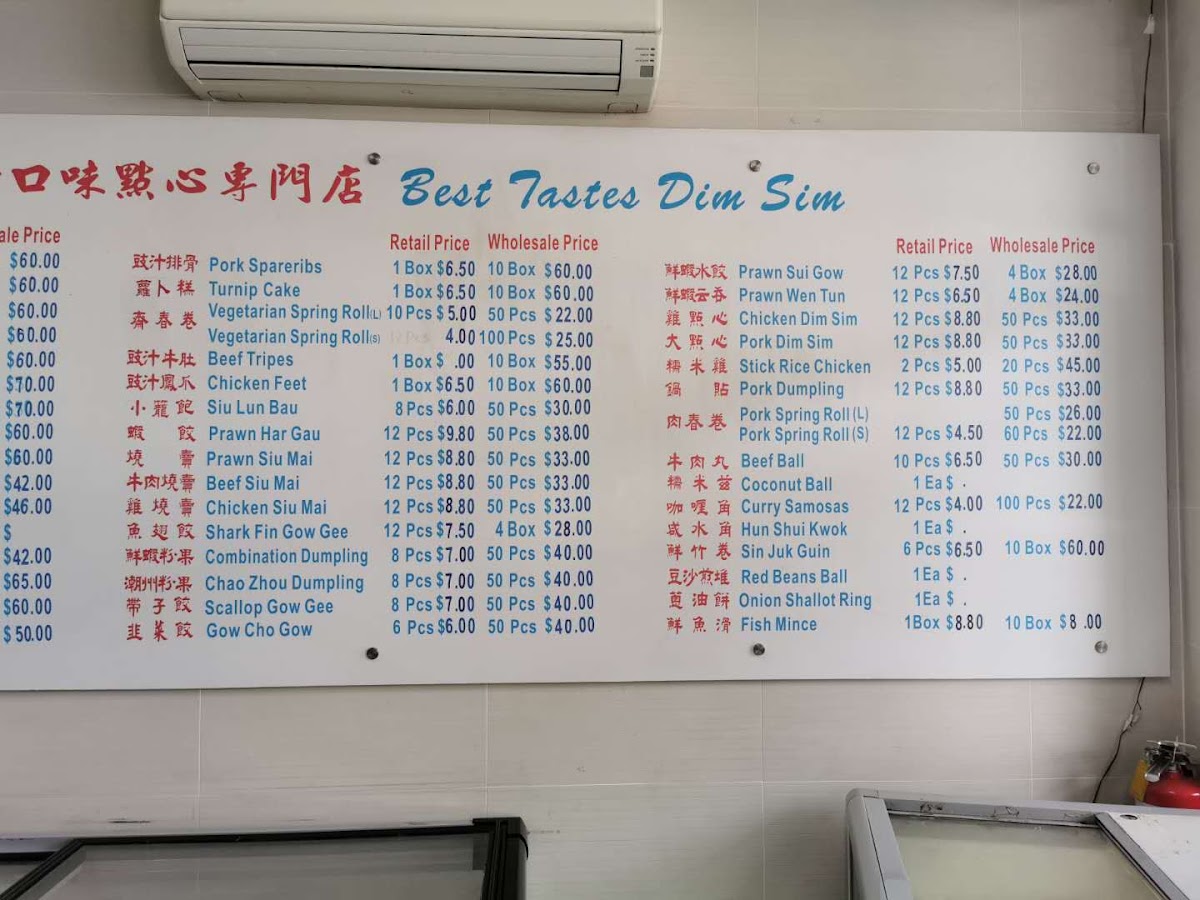 口味點心専門店 Best Tastes Dim Sim
ale Price
$60.00
$60.00
$60.00
$60.00
$60.00
$70.00
$70.00
$60.00
$60.00
$42.00
$46.00
$
$42.00
$65.00
$60.00
$50.00
Retail Price Wholesale Price
豉汁排骨 Pork Spareribs 1 Box $6.50 10 Box $60.00
蘿卜糕 Turnip Cake 1 Box $6.50 10 Box $60.00
齋春卷 Vegetarian Spring Roll(L) 10 Pcs $5.00 50 Pcs $22.00
Vegetarian Spring Roll(S) 4.00 100 Pcs $25.00
豉汁牛肚 Beef Tripes 1 Box $ .00 10 Box $55.00
豉汁鳳爪 Chicken Feet 1 Box $6.50 10 Box $60.00
小籠飽 Siu Lun Bau 8 Pcs $6.00 50 Pcs $30.00
蝦餃 Prawn Har Gau 12 Pcs $9.80 50 Pcs $38.00
燒賣 Prawn Siu Mai 12 Pcs $8.80 50 Pcs $33.00
牛肉燒賣 Beef Siu Mai 12 Pcs $8.80 50 Pcs $33.00
雞燒賣 Chicken Siu Mai 12 Pcs $8.80 50 Pcs $33.00
魚翅餃 Shark Fin Gow Gee 12 Pcs $7.50 4 Box $28.00
鮮蝦粉果 Combination Dumpling 8 Pcs $7.00 50 Pcs $40.00
潮州粉果 Chao Zhou Dumpling 8 Pcs $7.00 50 Pcs $40.00
帶子餃 Scallop Gow Gee 8 Pcs $7.00 50 Pcs $40.00
韭菜餃 Gow Cho Gow 6 Pcs $6.00 50 Pcs $40.00
Retail Price Wholesale Price
鮮蝦水餃 Prawn Sui Gow 12 Pcs $7.50 4 Box $28.00
鮮蝦云吞 Prawn Wen Tun 12 Pcs $6.50 4 Box $24.00
雞點心 Chicken Dim Sim 12 Pcs $8.80 50 Pcs $33.00
大點心 Pork Dim Sim 12 Pcs $8.80 50 Pcs $33.00
糯米雞 Stick Rice Chicken 2 Pcs $5.00 20 Pcs $45.00
鍋貼 Pork Dumpling 12 Pcs $8.80 50 Pcs $33.00
肉春卷 Pork Spring Roll (L) 50 Pcs $26.00
Pork Spring Roll (S) 12 Pcs $4.50 60 Pcs $22.00
牛肉丸 Beef Ball 10 Pcs $6.50 50 Pcs $30.00
糯米兹 Coconut Ball 1 Ea $ .
咖喱角 Curry Samosas 12 Pcs $4.00 100 Pcs $22.00
咸水角 Hun Shui Kwok 1 Ea $ .
鮮竹卷 Sin Juk Guin 6 Pcs $6.50 10 Box $60.00
豆沙煎堆 Red Beans Ball 1 Ea $ .
蔥油餅 Onion Shallot Ring 1Ea $ .
鮮魚滑 Fish Mince 1Box $8.80 10 Box $8 .00